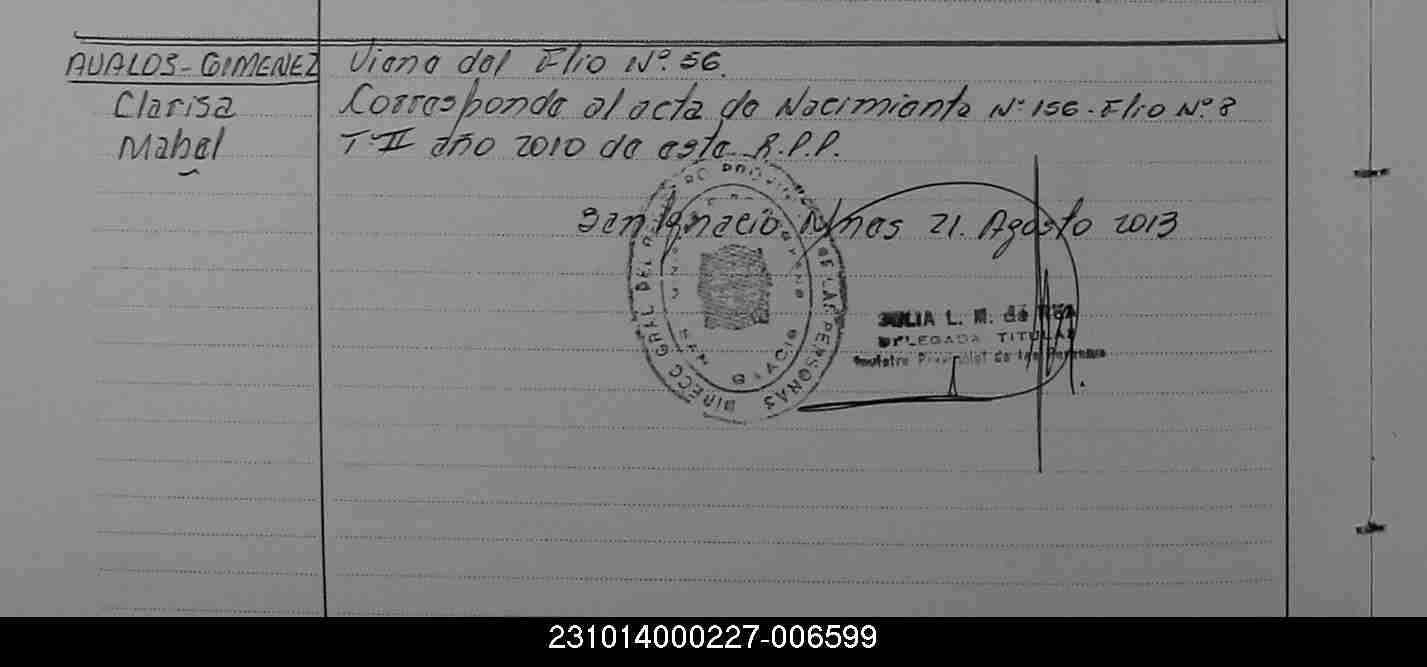 AVALOS-GIMENEZ Viene del Flio Nº. 56.
Clarisa Corresponde al acta de Nacimiento Nº 156 - Flio Nº 8
Mabel TºII año 2010 de este R.P.P.
San Ignacio Mnes 21. Agosto 2013
DIRECC GRAL DEL PERSONAS
SAN
JULIA L. M. de
DELEGADA TITULAR
Registro Provincial de las Personas
231014000227-006599